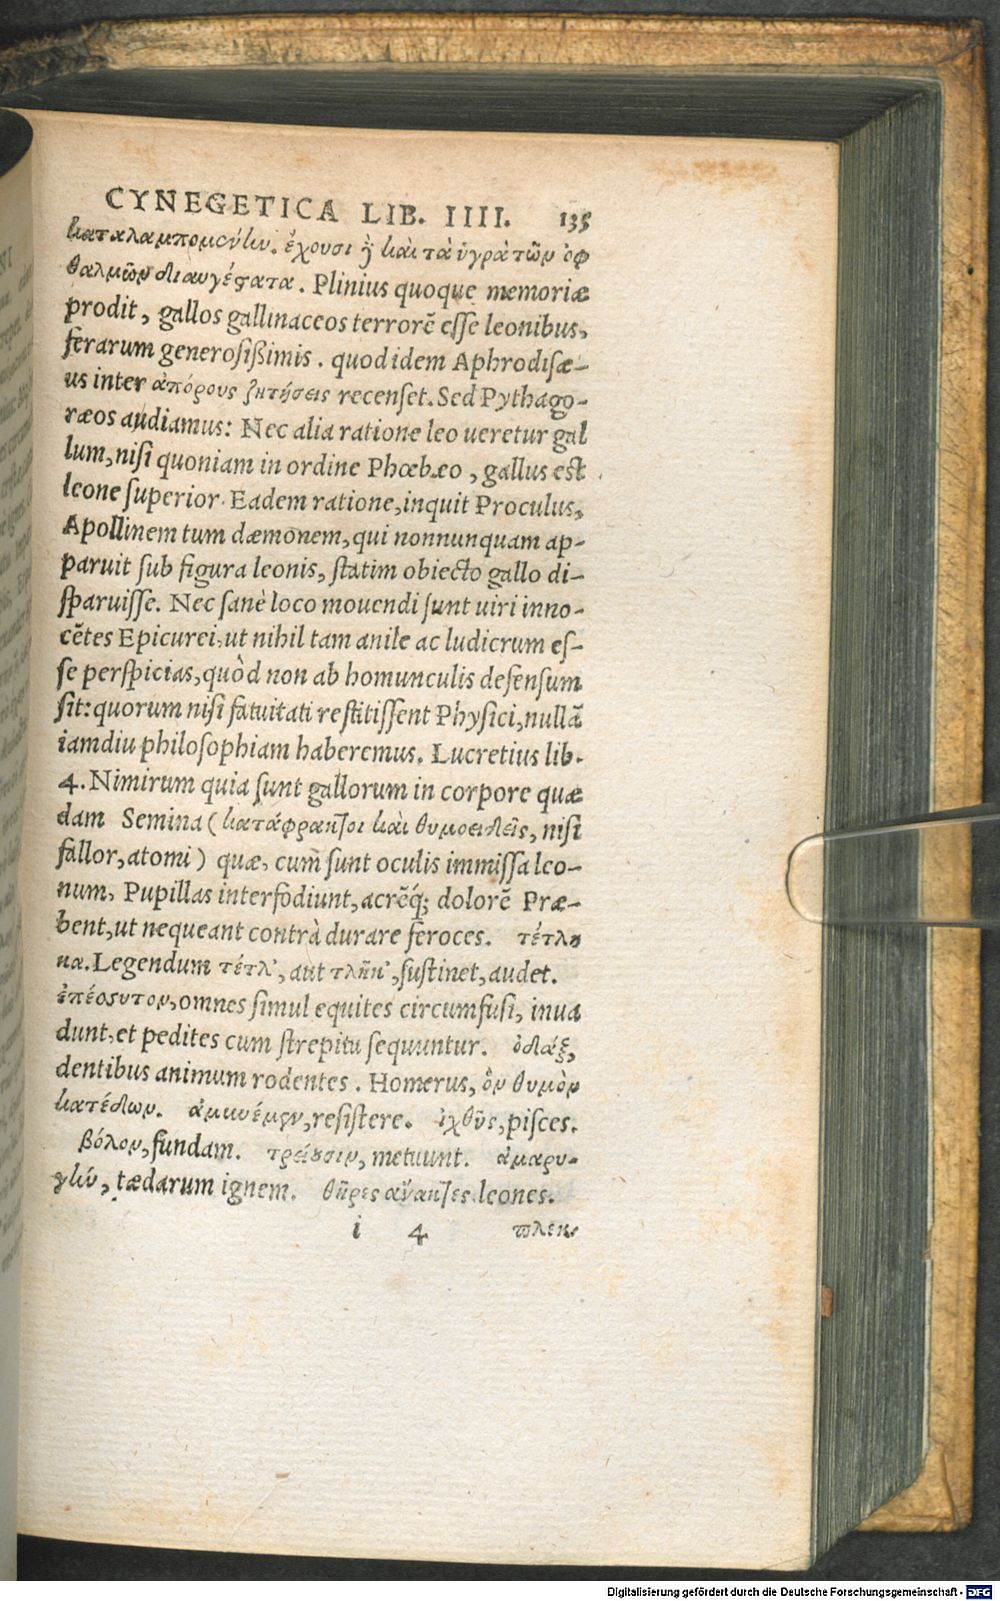 CYNEGETICA LIB. IIII. 135
καταλαμπομένην. ἔχουσι ἢ καὶ τὰ ὑγρὰ τῶν ὀφ
θαλμῶν διαυγέςατα. Plinius quoque memoriæ
prodit, gallos gallinaceos terrorẽ esse leonibus,
ferarum generosißimis. quod idem Aphrodisæ-
us inter ἀπόρους ζητήσεις recenset. Sed Pythago-
ræos audiamus: Nec alia ratione leo ueretur gal
lum, nisi quoniam in ordine Phœbeo, gallus est
leone superior. Eadem ratione, inquit Proculus,
Apollinem tum dæmonem, qui nonnunquam ap-
paruit sub figura leonis, statim obiecto gallo di-
sparuisse. Nec sanè loco mouendi sunt uiri inno-
cẽtes Epicurei, ut nihil tam anile ac ludicrum es-
se perspicias, quòd non ab homunculis defensum
sit: quorum nisi fatuitati restitissent Physici, nullã
iamdiu philosophiam haberemus. Lucretius lib.
4. Nimirum quia sunt gallorum in corpore quæ
dam Semina (κατάφρακτοι καὶ θυμοειδεῖς, nisi
fallor, atomi) quæ, cum sunt oculis immissa leo-
num, Pupillas interfodiunt, acrẽq́; dolorẽ Præ-
bent, ut nequeant contrà durare feroces. τέτλη
κα. Legendum τέτλ', aut τλῆκ', sustinet, audet.
ἐπέσσυτον, omnes simul equites circumfusi, inua
dunt, et pedites cum strepitu sequuntur. ὀδάξ,
dentibus animum rodentes. Homerus, ὃν θυμὸν
κατέδων. ἀμυνέμεν, resistere. ἰχθῦς, pisces.
βόλον, fundam. τρείουσιν, metuunt. ἀμαρυ-
γὴν, tædarum ignem. θῆρες ἄνακτες leones.
i 4 πλεκ
Digitalisierung gefördert durch die Deutsche Forschungsgemeinschaft - DFG